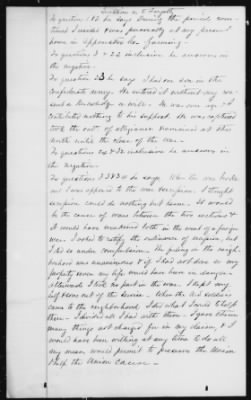 To question 1 & 2 he says During the period mentioned I resided
personally at my present
home in
To questions 3 & 22 inclusive he answers in
the negative.
To question 23 he says I had one son in the
Confederate army. He entered it without my consent
knowledge or will. He was over age & I
contributed nothing to his support. He was captured
took the oath of allegiance remained at the
North until the close of the war.
To questions 24 & 32 inclusive he answers in
the negative.
To questions 33 & 34 he says When the war broke
out I was opposed to the war secession. I thought
secession could do nothing but harm. It would
be the cause of wars between the two sections &
it would have weakened both in the event of a foreign
war. I voted to ratify the ordinance of secession, but
I did so under compulsion. The feeling in the neighborhood
was unanimous & if I had not done so my
property even my life would have been in danger.
Afterwards I took no part in the war. I kept my
self & sons out of the service. When the U.S. soldiers
came to the neighborhood I did what I could to help
them. I divided all I had with them. I gave them
many things not charged for in my claim, & I
would have been willing at any time to do all
my means would permit to preserve the Union
& help the Union Cause.